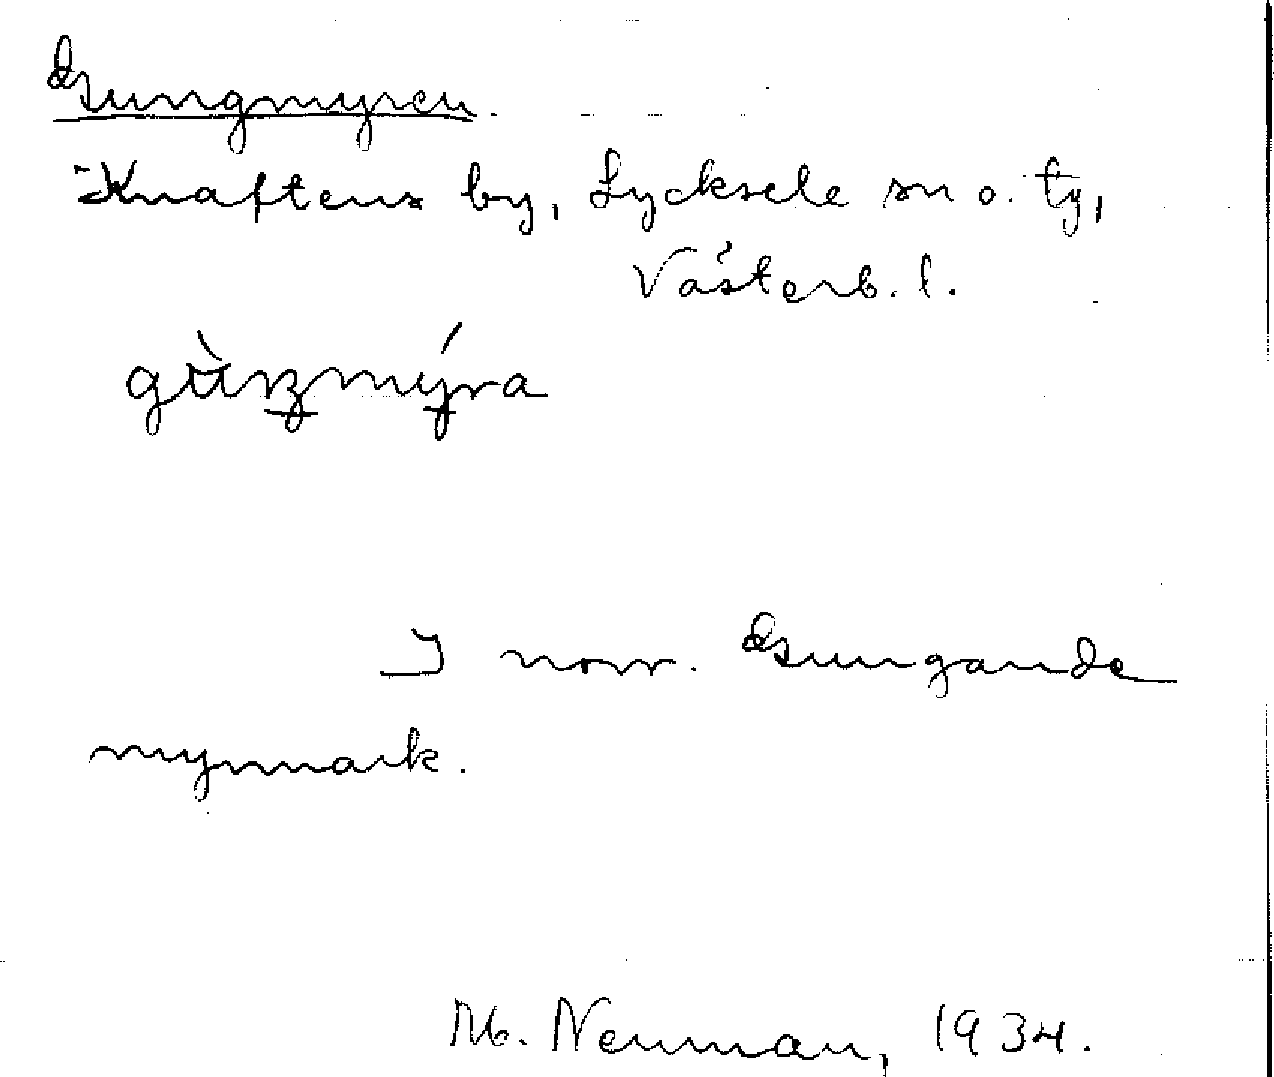 Gungmyren.
Knaftens by, Lycksele sn o. ty,
Västerb. l.
I norr. Gungande
myrmark.
M. Neuman, 1934.